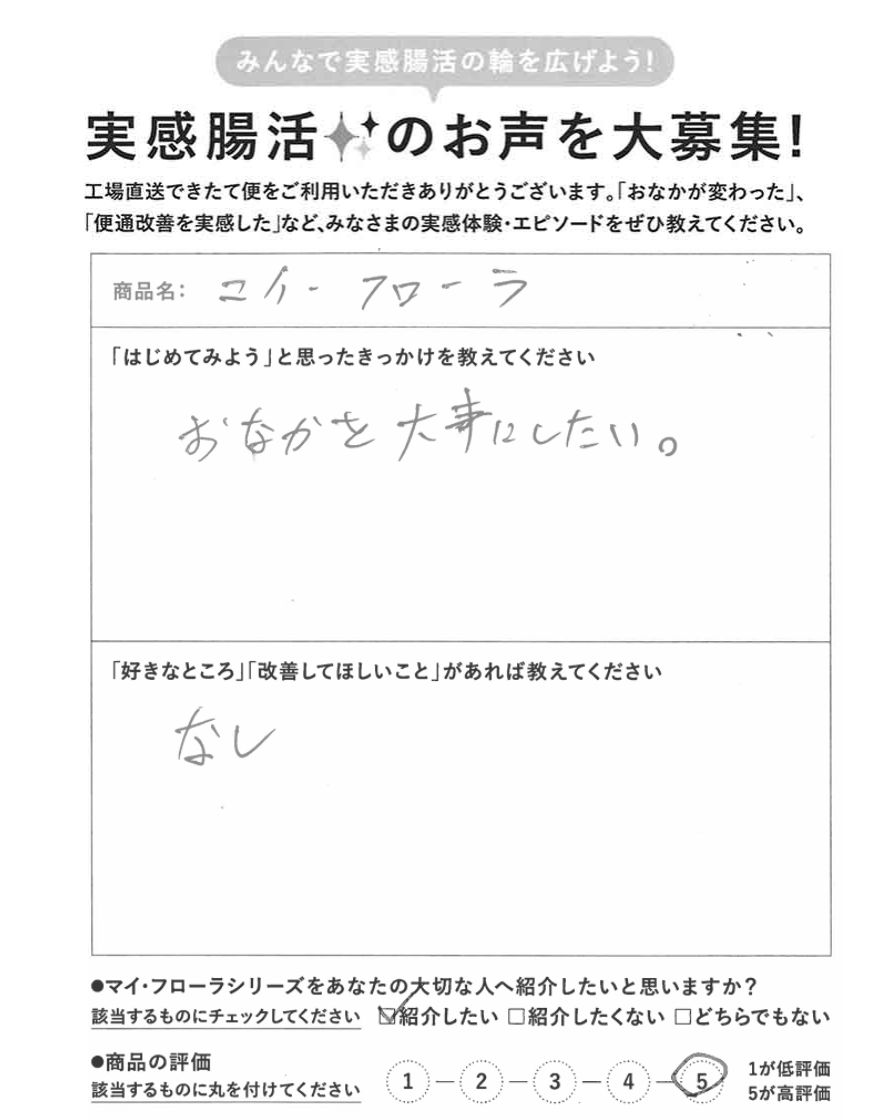 みんなで実感腸活の輪を広げよう!
実感腸活のお声を大募集!
工場直送できたて便をご利用いただきありがとうございます。「おなかが変わった」、
「便通改善を実感した」など、みなさまの実感体験・エピソードをぜひ教えてください。
商品名: コイ・フローラ
「はじめてみよう」と思ったきっかけを教えてください
おなかを大事にしたい。
「好きなところ」「改善してほしいこと」があれば教えてください
なし
●マイ・フローラシリーズをあなたの大切な人へ紹介したいと思いますか?
該当するものにチェックしてください ☑紹介したい □紹介したくない □どちらでもない
●商品の評価
該当するものに丸を付けてください 1 - 2 - 3 - 4 - 5
1が低評価
5が高評価